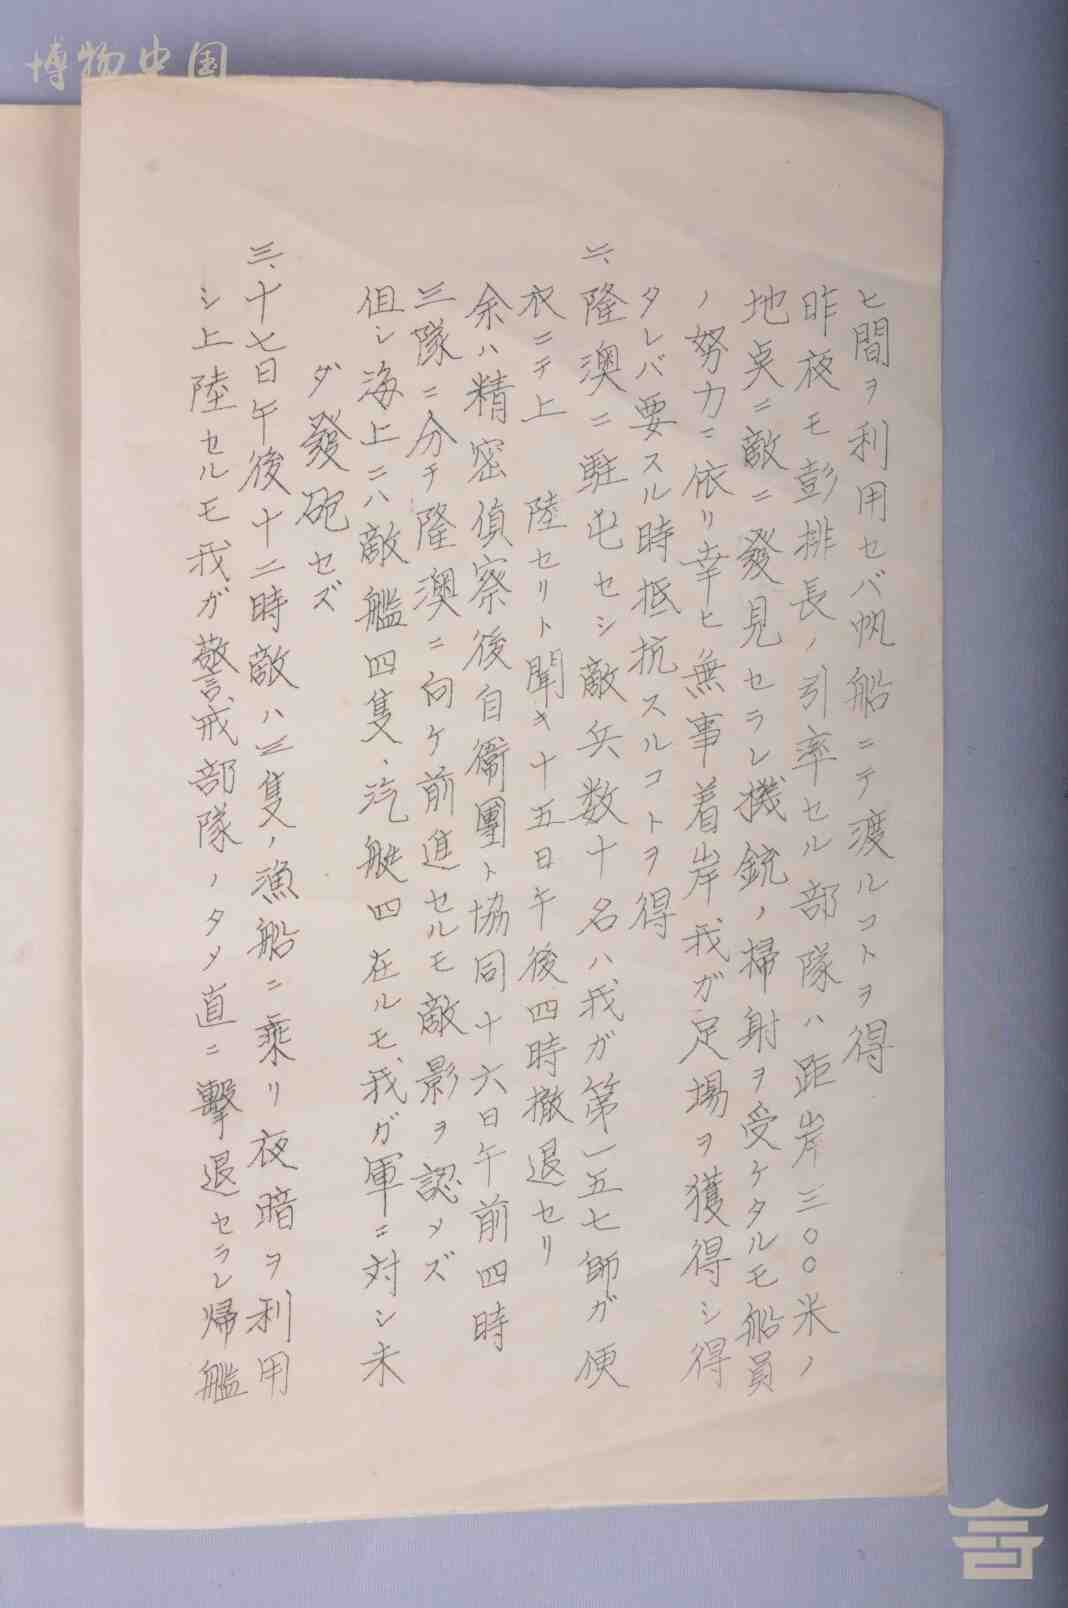 博物中国
ヒ間ヲ利用セバ帆船ニテ渡ルコトヲ得
昨夜モ彭排長ノ引率セル部隊ハ距岸三〇〇米ノ
地点ニ敵ニ發見セラレ機銃ノ掃射ヲ受ケタルモ船員
ノ努力ニ依リ幸ヒ無事着岸我ガ足場ヲ獲得シ得
タレバ要スル時抵抗スルコトヲ得
二、隆澳ニ駐屯セシ敵兵数十名ハ我ガ第一五七師ガ便
衣ニテ上 陸セリト聞キ十五日午後四時撤退セリ
余ハ精密偵察後自衞團ト協同十六日午前四時
三隊ニ分チ隆澳ニ向ケ前進セルモ敵影ヲ認メズ
但シ海上ニハ敵艦四隻、汽艇四在ルモ我ガ軍ニ対シ未
ダ發砲セズ
三、十七日午後十二時敵ハ三隻ノ漁船ニ乗リ夜暗ヲ利用
シ上陸セルモ我ガ警戒部隊ノタメ直ニ擊退セラレ帰艦